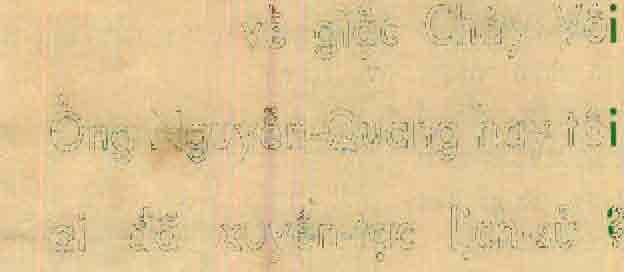 về giặc Cháy Vôi
Ông Nguyễn-Quang hay tôi
ai đã xuyên-tạc lịch-sử ?